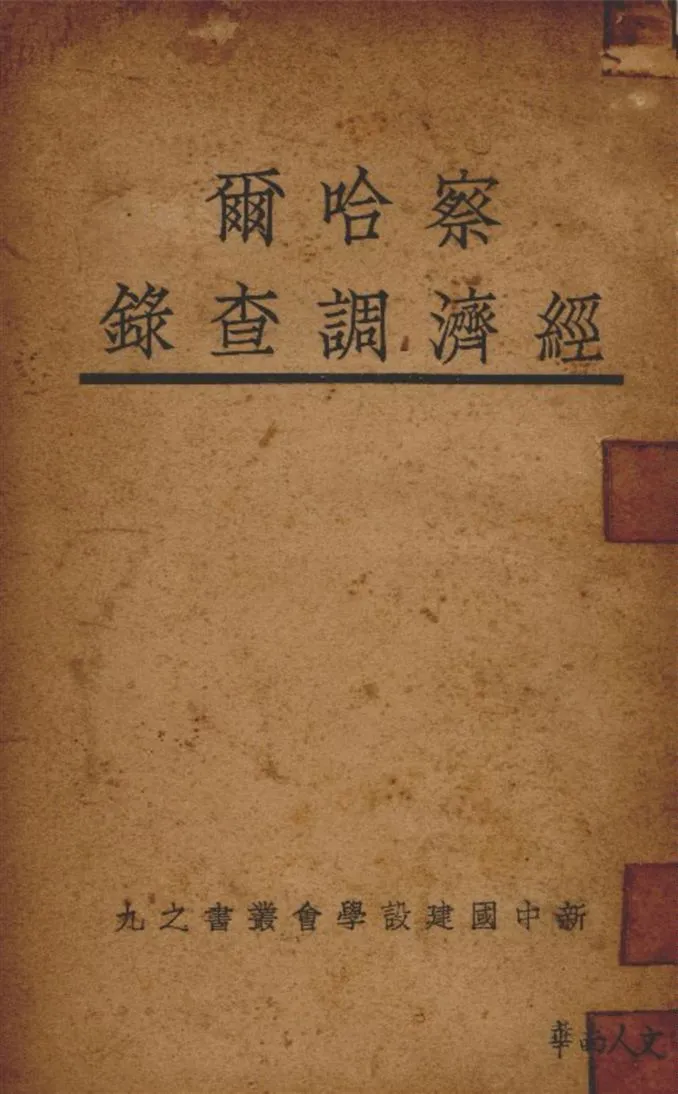 察哈爾
經濟調查錄
新中國建設學會叢書之九